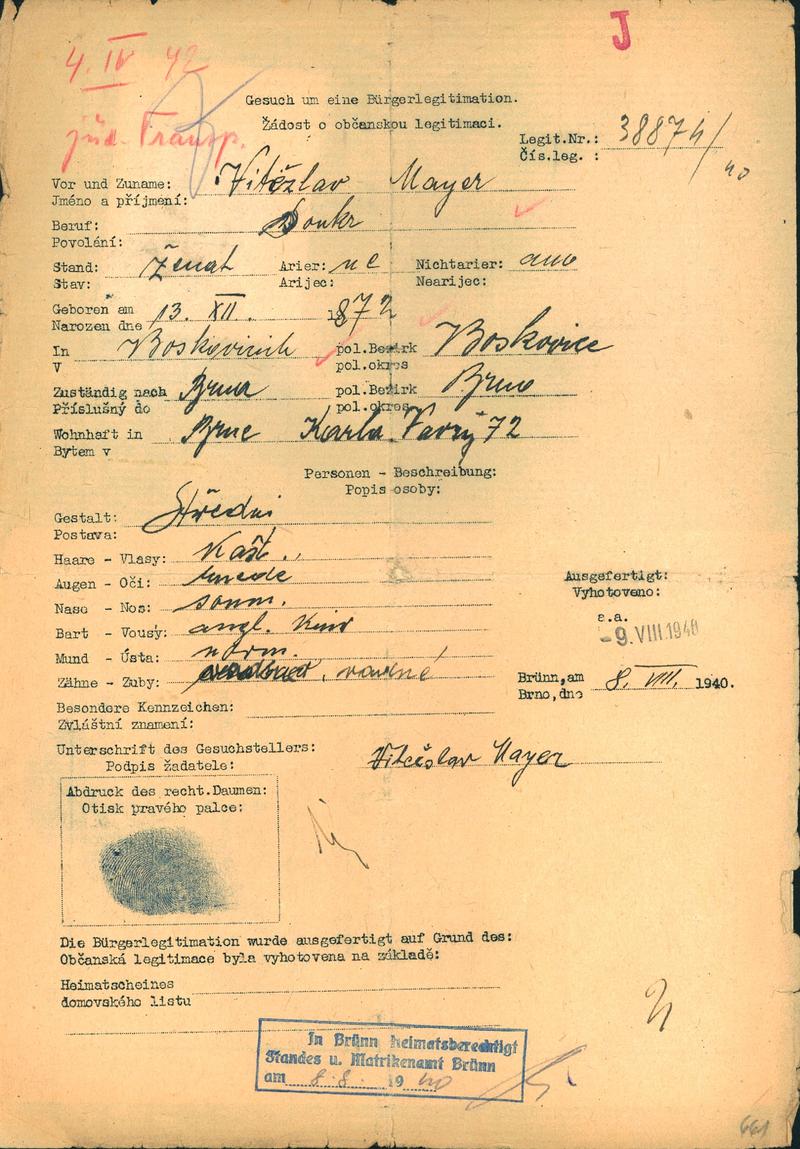 J
4. IV 42
Gesuch um eine Bürgerlegitimation.
Žádost o občanskou legitimaci.
jüd. Transp.
Legit.Nr.: 38874/40
Čís.leg. :
Vor und Zuname: Vítězslav Mayer
Jméno a příjmení:
Beruf: Soukr
Povolání:
Stand: ženat Arier: ne Nichtarier: ano
Stav: Arijec: Nearijec:
Geboren am 13. XII. 1872
Narozen dne
In Boskovicích pol.Bezirk Boskovice
V pol.okres
Zuständig nach Brna pol.Bezirk Brno
Příslušný do pol.okres
Wohnhaft in Brně Karla Vavry 72
Bytem v
Personen - Beschreibung:
Popis osoby:
Gestalt: Střední
Postava:
Haare - Vlasy: Kašt.
Augen - Oči: hnědé
Ausgefertigt:
Vyhotoveno:
Nase - Nos: soum.
a.a.
-9.VIII.1940
Bart - Vousy: angl. knír
Mund - Ústa: norm.
Zähne - Zuby: rovné
Brünn, am 8. VIII. 1940.
Brno, dne
Besondere Kennzeichen:
Zvláštní znamení:
Unterschrift des Gesuchstellers: Vítězslav Mayer
Podpis žadatele:
Abdruck des recht.Daumen:
Otisk pravého palce:
Die Bürgerlegitimation wurde ausgefertigt auf Grund des:
Občanská legitimace byla vyhotovena na základě:
Heimatscheines
domovského listu
In Brünn heimatsberechtigt
Standes u. Matrikenamt Brünn
am 8.8. 1940
661